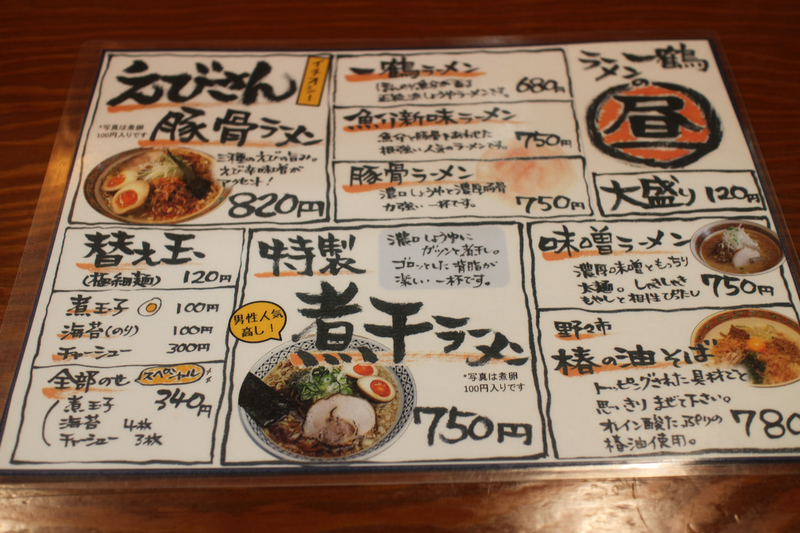 イチオシ
えびさん
豚骨ラーメン
*写真は煮卵
100円入りです
三種のえびの旨み。
えび辛味噌が
アクセント!
820円
一鶴ラーメン
680円
正統派しょうゆラーメンです。
魚介新味ラーメン
魚介と豚骨をあわせた
根強い人気のラーメンです。
750円
豚骨ラーメン
濃口しょうゆと濃厚豚骨
力強い一杯です。
750円
一鶴
ラーメンの
昼
大盛り 120円
替え玉
(極細麺) 120円
煮玉子 100円
海苔(のり) 100円
チャーシュー 300円
全部のせ スペシャル
340円
煮玉子
海苔 4枚
チャーシュー 3枚
特製
煮干ラーメン
濃口しょうゆに
ガツンと煮干し。
ゴロッとした背脂が
深い一杯です。
男性人気
高し!
*写真は煮卵
100円入りです
750円
味噌ラーメン
濃厚味噌ともっちり
太麺。しゃきしゃき
もやしと相性ぴったし
750円
野々市
椿の油そば
トッピングされた具材ごと
思っきりまぜて下さい。
オレイン酸たっぷりの
椿油使用。
780